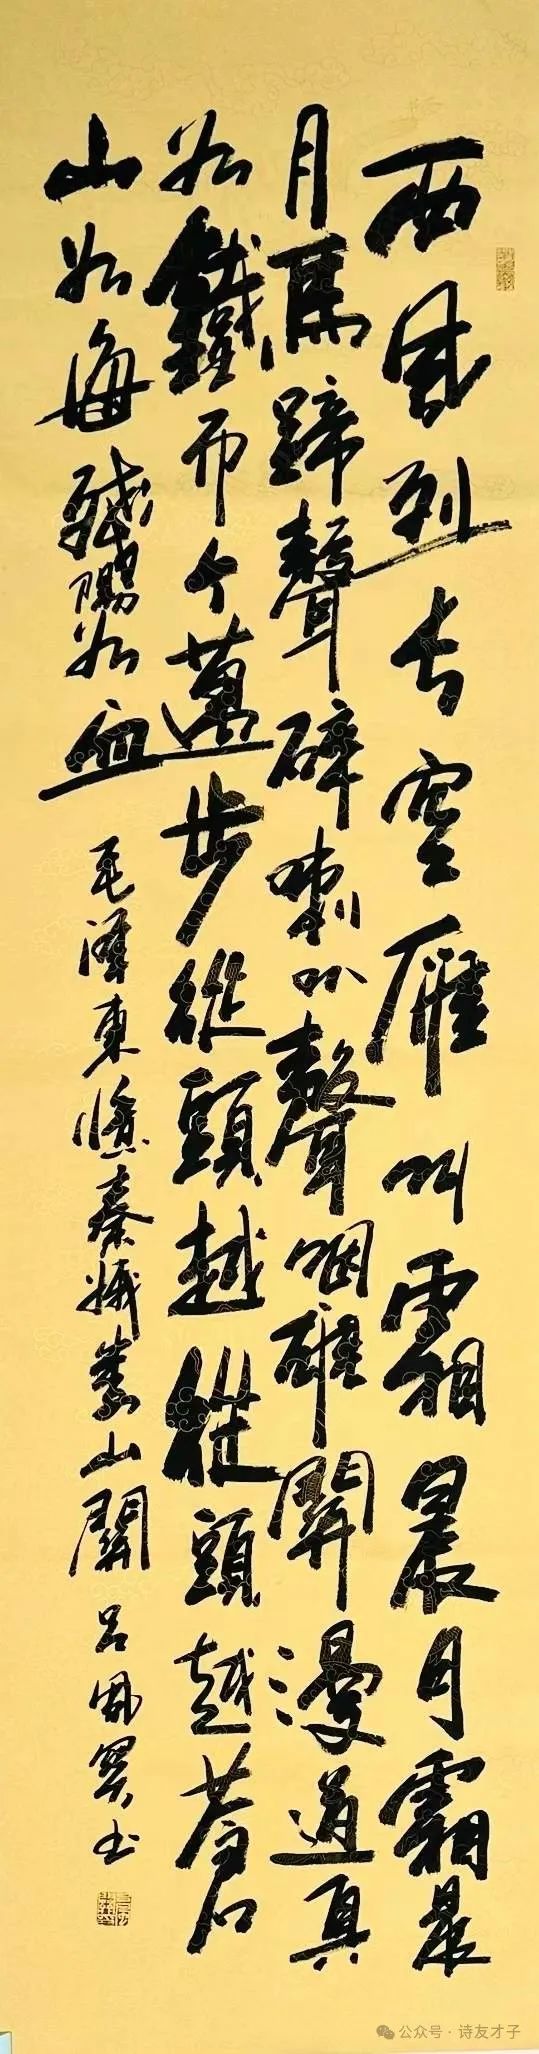 西風列长空雁叫霜晨月霜晨
月馬蹄聲碎喇叭聲咽雄關漫道真
如鐵而今邁步從頭越從頭越蒼
山如海殘陽如血 毛澤東憶秦娥婁山關 呂书
公众号 · 诗友才子